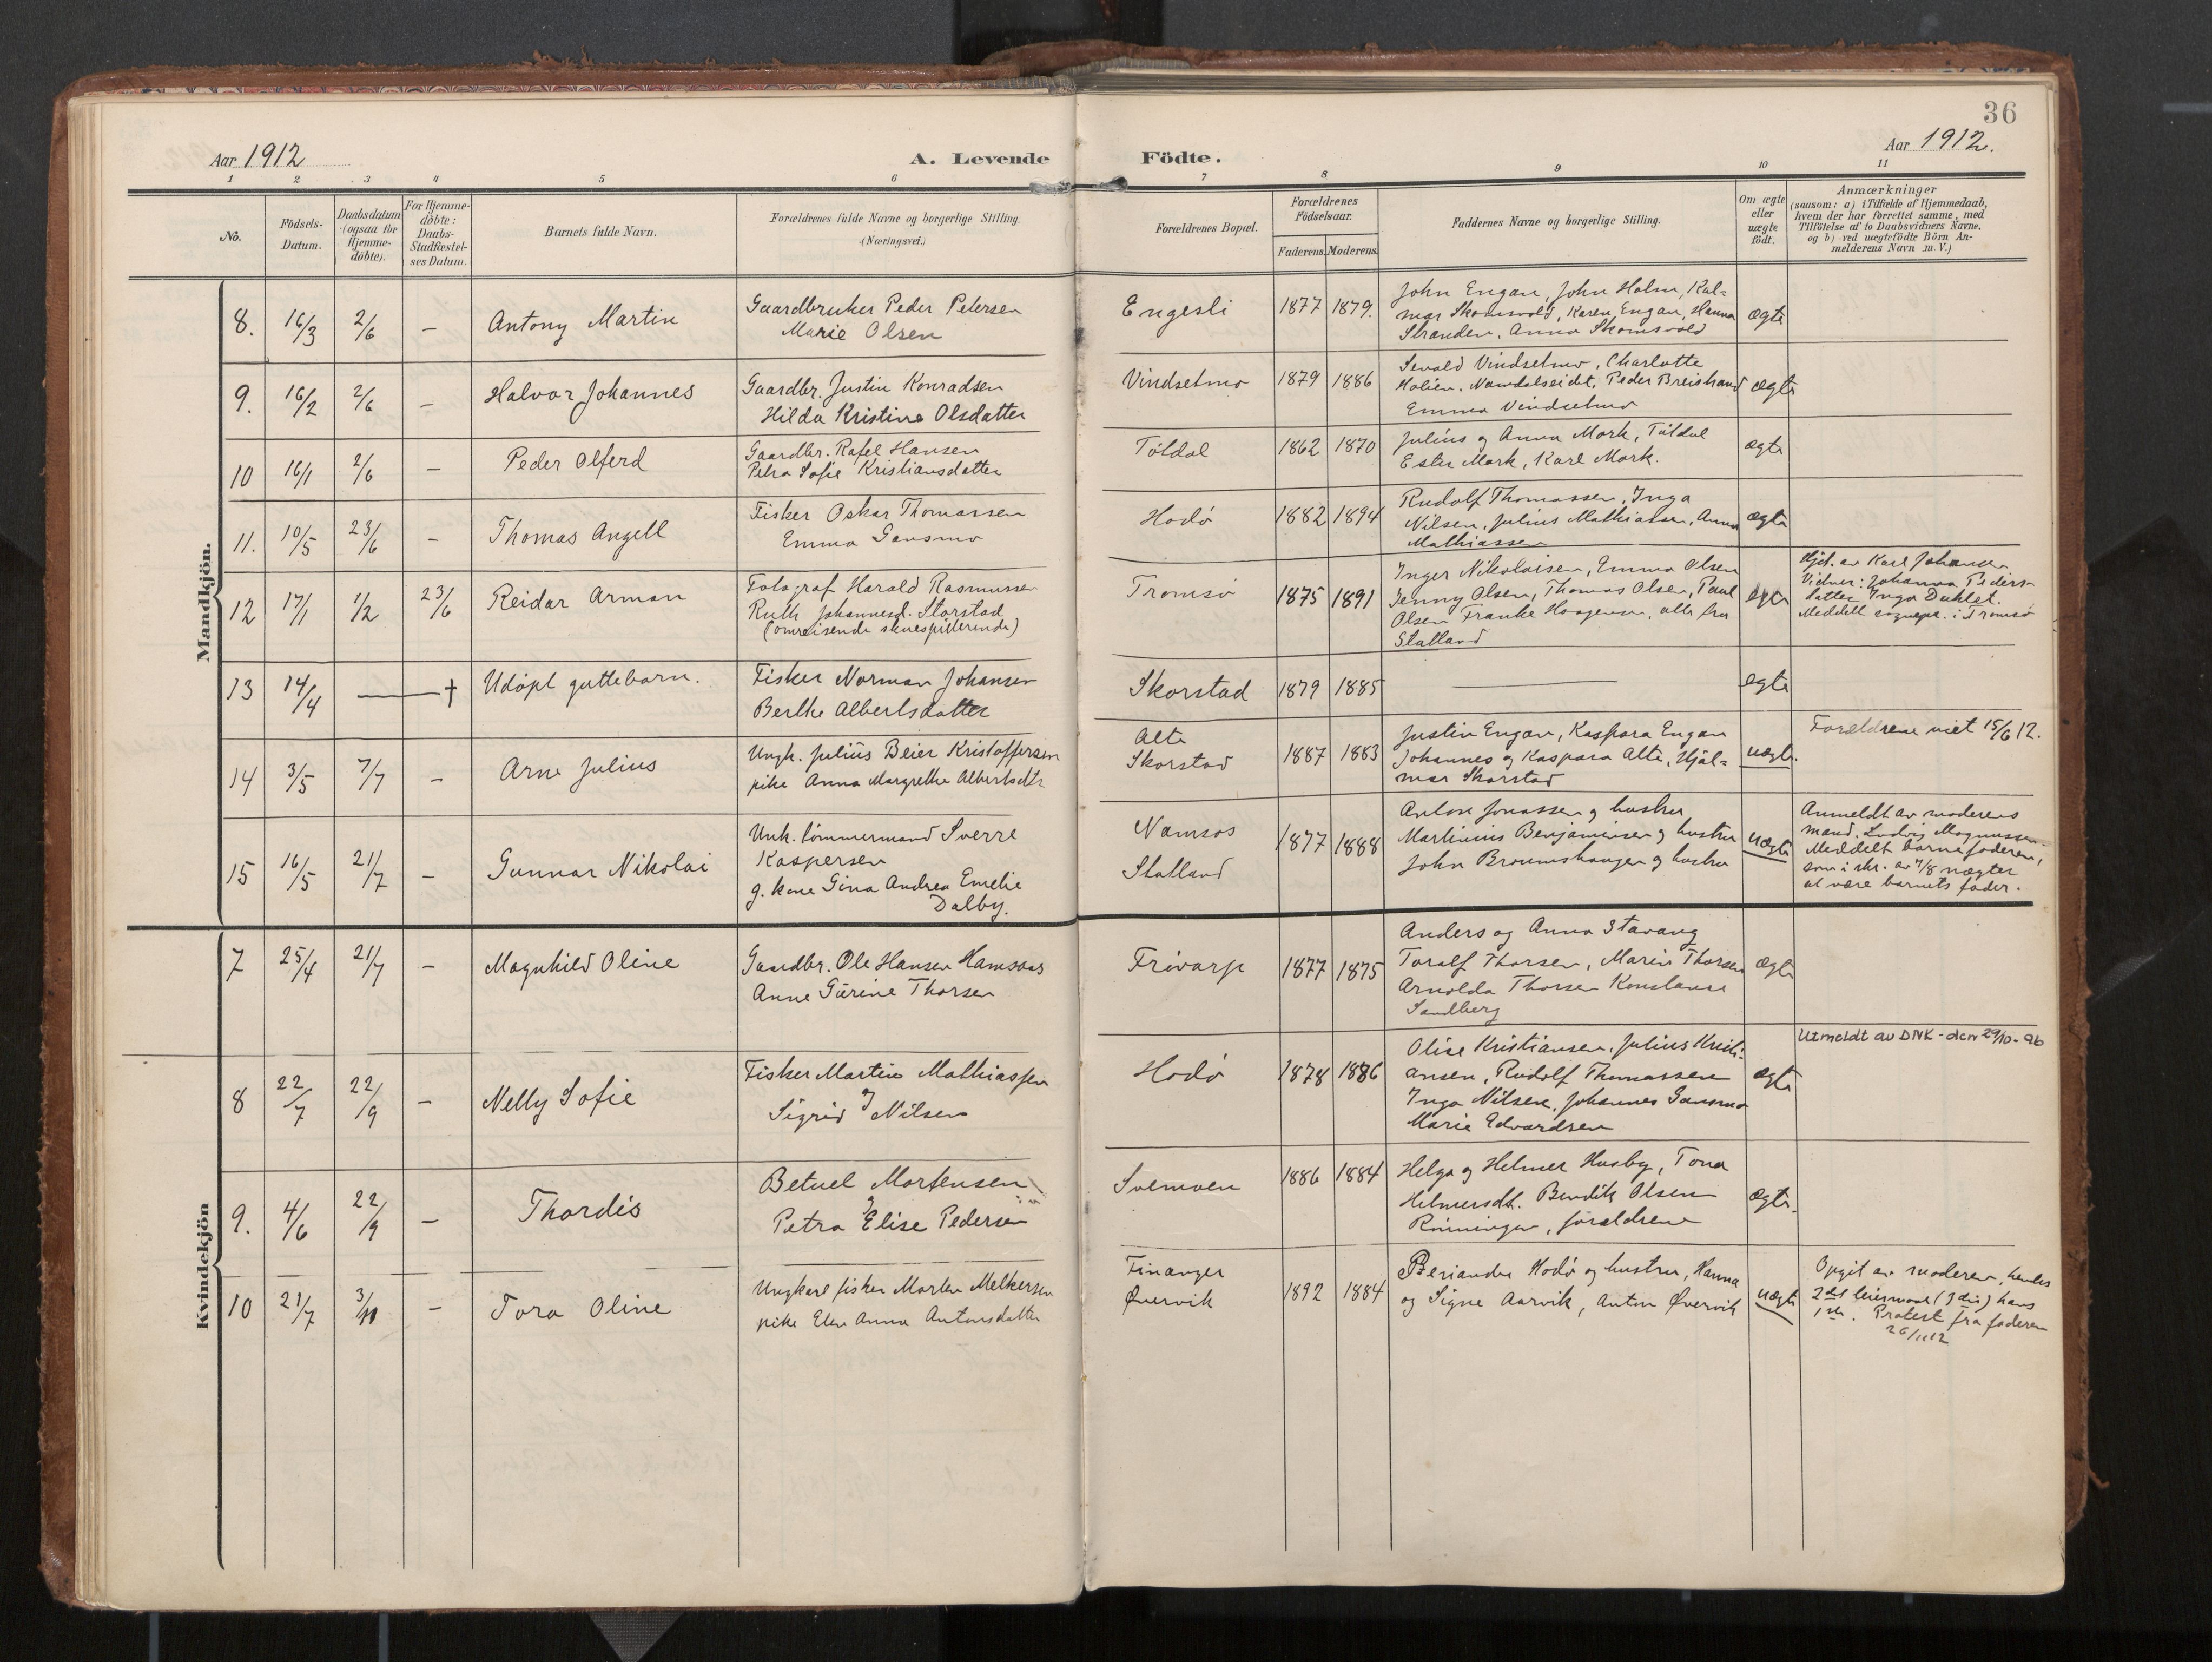 36
Aar 1912
A. Levende
Födte.
Aar 1912.
1 2 3 4 5 6 7 8 9 10 11
No.
Födsels-
Datum.
Daabsdatum
(ogsaa for
Hjemme-
döbte).
For Hjemme-
döbte:
Daabs-
Stadfæstel-
ses Datum.
Barnets fulde Navn.
Forældrenes fulde Navne og borgerlige Stilling.
(Næringsvei.)
Forældrenes Bopæl.
Forældrenes
Födselsaar.
Faderens. Moderens.
Faddernes Navne og borgerlige Stilling.
Om ægte
eller
uægte
födt.
Anmærkninger
(saasom: a) i Tilfælde af Hjemmedaab,
hvem der har forrettet samme, med
Tilföielse af to Daabsvidners Navne.
og b) ved uægtefödte Börn An-
melderens Navn m. V.)
Mandkjön.
8. 16/3 2/6 – Antony Martin
Gaardbruker Peder Petersen
Marie Olsen
Engesli 1877 1879.
John Engan, John Holm, Kal-
mar Skomsvold, Karen Engan, Hanna
Stranden. Anna Skomsvold
ægte
9. 16/2 2/6 – Halvor Johannes
Gaardbr. Justin Konradsen
Hilda Kristine Olsdatter
Vindsetmo 1879 1886
Sevald Vindsetmo, Charlotte
Holien. Namdalseidet, Peder Breistrand
Emma Vindsetmo
ægte
10 16/1 2/6 – Peder Olferd
Gaardbr. Rafel Hansen
Petra Sofie Kristiansdatter
Töldal 1862 1870
Julius og Anna Mork, Töldal
Ester Mork, Karl Mork.
ægte
11. 10/5 23/6 – Thomas Angell
Fisker Oskar Thomassen
Emma Gansmo
Hodö 1882 1894
Rudolf Thomassen, Inga
Nilsen, Julius Mathiassen, Anna
Mathiassen
ægte
12 17/1 1/2 23/6 Reidar Arman
Fotograf Harald Rasmussen
Ruth Johannesd. Storstad
(omreisende skuespillerinde)
Tromsö 1875 1891
Inger Nikolaisen, Emma Olsen
Jenny Olsen, Thomas Olsen, Paul
Olsen Franke Haagensen, alle fra
Statland
egte
Hjd. av Karl Johansen
Vidner: Johanna Peders-
datter Inga Dahlet.
Meddelt sognepr. i Tromsö
13 14/4 † Udöpt guttebarn.
Fisker Norman Johansen
Berthe Albertsdatter
Skorstad 1879 1885
egte
14 3/5 7/7 – Arne Julius
Ungk. Julius Beier Kristoffersen
pike Anna Margrethe Albertsdtr
Alte
Skorstad 1887 1883
Justin Engan, Kaspara Engan
Johannes og Kaspara Alte, Hjal-
mar Skorstad
uægte.
Forældrene viet 15/6 12.
15 16/5 21/7 – Gunnar Nikolai
Unk. tömmermand Sverre
Kaspersen
g. kone Gina Andrea Emelie
Dalby.
Namsos
Statland 1877 1888
Anton Jonassen og hustru
Martinius Benjaminsen og hustru
John Broumshaugen og hustru
uægte
Anmeldt av moderens
mand. Ludvig Magnussen.
Meddelt barnefaderen,
som i skr. av 7/8 nægter
at være barnets fader.
Kvindekjön
7 25/4 21/7 – Magnhild Oline
Gaardbr. Ole Hansen Hamsaas
Anne Gürine Thorsen
Frövarp 1877 1875
Anders og Anna Stavang
Toralf Thorsen, Marie Thorsen
Arnolda Thorsen Konstanse
Sandberg
ægte
8 22/7 22/9 – Nelly Sofie
Fisker Martin Mathiassen
og
Sigrid Nilsen
Hodö 1878 1886
Olise Kristiansen, Julius Kristi-
ansen, Rudolf Thomassen
Inga Nilsen, Johannes Gansmo
Marie Edvardsen
ægte
Utmeldt av DNK - den 29/10-96
9. 4/6 22/9 – Thordis
Betuel Mortensen
og
Petra Elise Pedersen
Svemoen 1886 1884
Helga og Helmer Husby, Tona
Helmersdt. Bendik Olsen
Rönningen, forældrene
ægte.
10 21/7 3/11 – Tora Oline
Ungkarl fisker Morten Melkersen
pike Elen Anna Antonsdatter
Finanger
Øvervik 1892 1884
Beriander Hodö og hustru, Hanna
og Signe Aarvik, Anton Øvervik
uægte
Opgit av moderen, hendes
2det leiermaal (3die) hans
1ste. Protest fra faderen
26/11 12